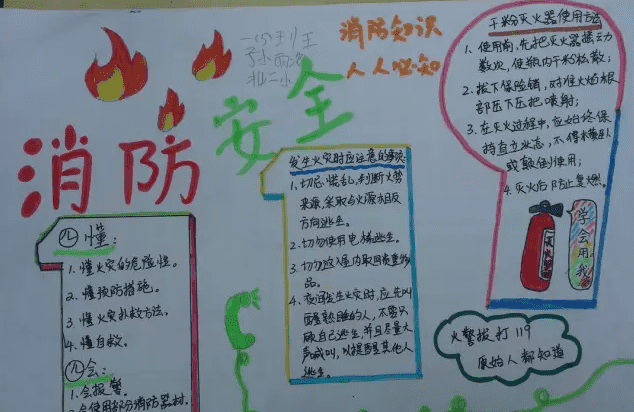 消防知识
人人必知
消防
安全
干粉灭火器使用方法
1、使用前,先把灭火器摇动
数次,使瓶内干粉松散;
2、拔下保险销,对准火焰根
部压下压把喷射;
3、在灭火过程中,应始终保
持直立状态,不得横卧
或颠倒使用;
4、灭火后防止复燃。
学会用我
灭火器
发生火灾时应注意的事项
1、切忌慌乱,判断火势
来源,采取与火源相反
方向逃生。
2、切勿使用电梯逃生。
3、切勿返入屋内取回贵重物
品。
4、夜间发生火灾时,应先叫
醒熟睡的人,不要只
顾自己逃生,并且尽量大
声喊叫,以提醒其他人
逃生。
四懂:
1、懂火灾的危险性。
2、懂预防措施。
3、懂火灾扑救方法。
4、懂自救。
四会:
1、会报警。
2、会使用部分消防器材.
火警拨打119
原始人都知道